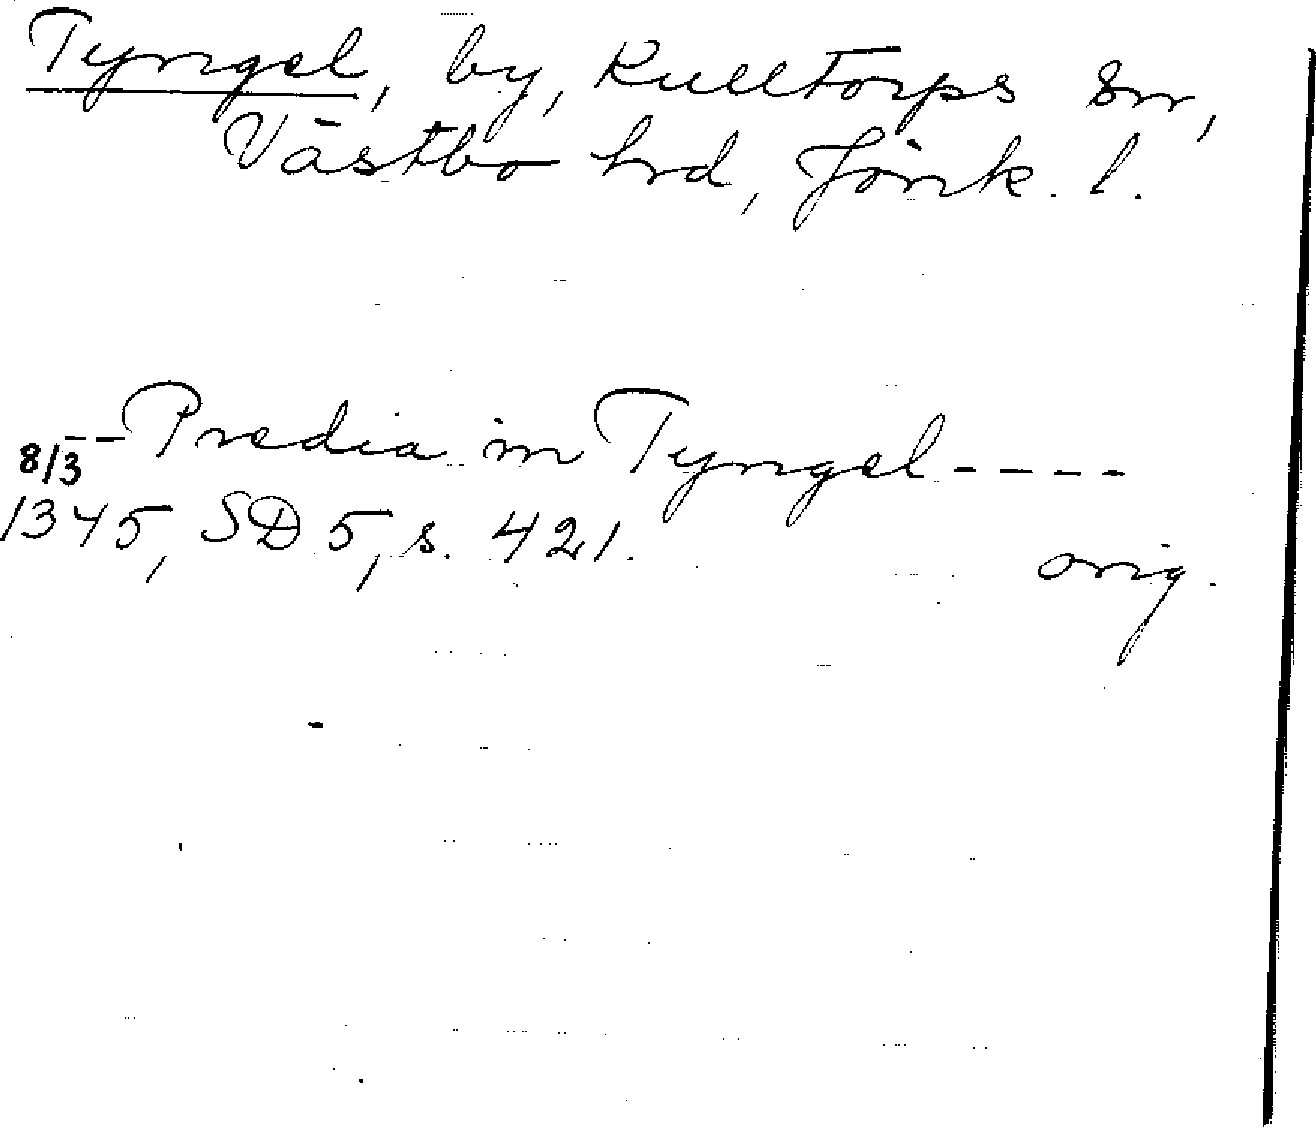 Tyngel, by, Kulltorps sn,
Västbo hrd, Jönk. l.
-- Predia in Tyngel -----
8/3
1345, SD 5, s. 421.
orig.